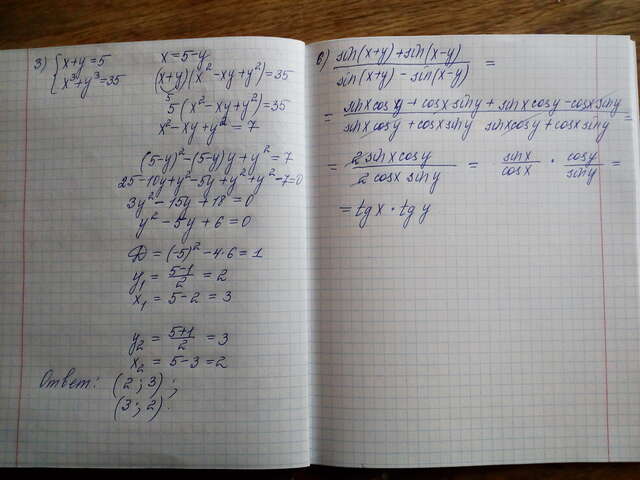 3) { x+y=5        x=5-y
x³+y³=35    (x+y)(x²-xy+y²)=35
5
5(x²-xy+y²)=35
x²-xy+y²=7
(5-y)²-(5-y)y+y²=7
25-10y+y²-5y+y²+y²-7=0
3y²-15y+18=0
y²-5y+6=0
D=(-5)²-4·6=1
y₁ = (5-1)/2 = 2
x₁ = 5-2 = 3
y₂ = (5+1)/2 = 3
x₂ = 5-3=2
Ответ: (2; 3);
(3; 2).
6) (sin(x+y)+sin(x-y))/(sin(x+y)-sin(x-y)) =
= (sinxcosy+cosxsiny+sinxcosy-cosxsiny)/(sinxcosy+cosxsiny sinxcosy+cosxsiny) =
= (2sinxcosy)/(2cosxsiny) = sinx/cosx · cosy/siny =
= tgx·tgy